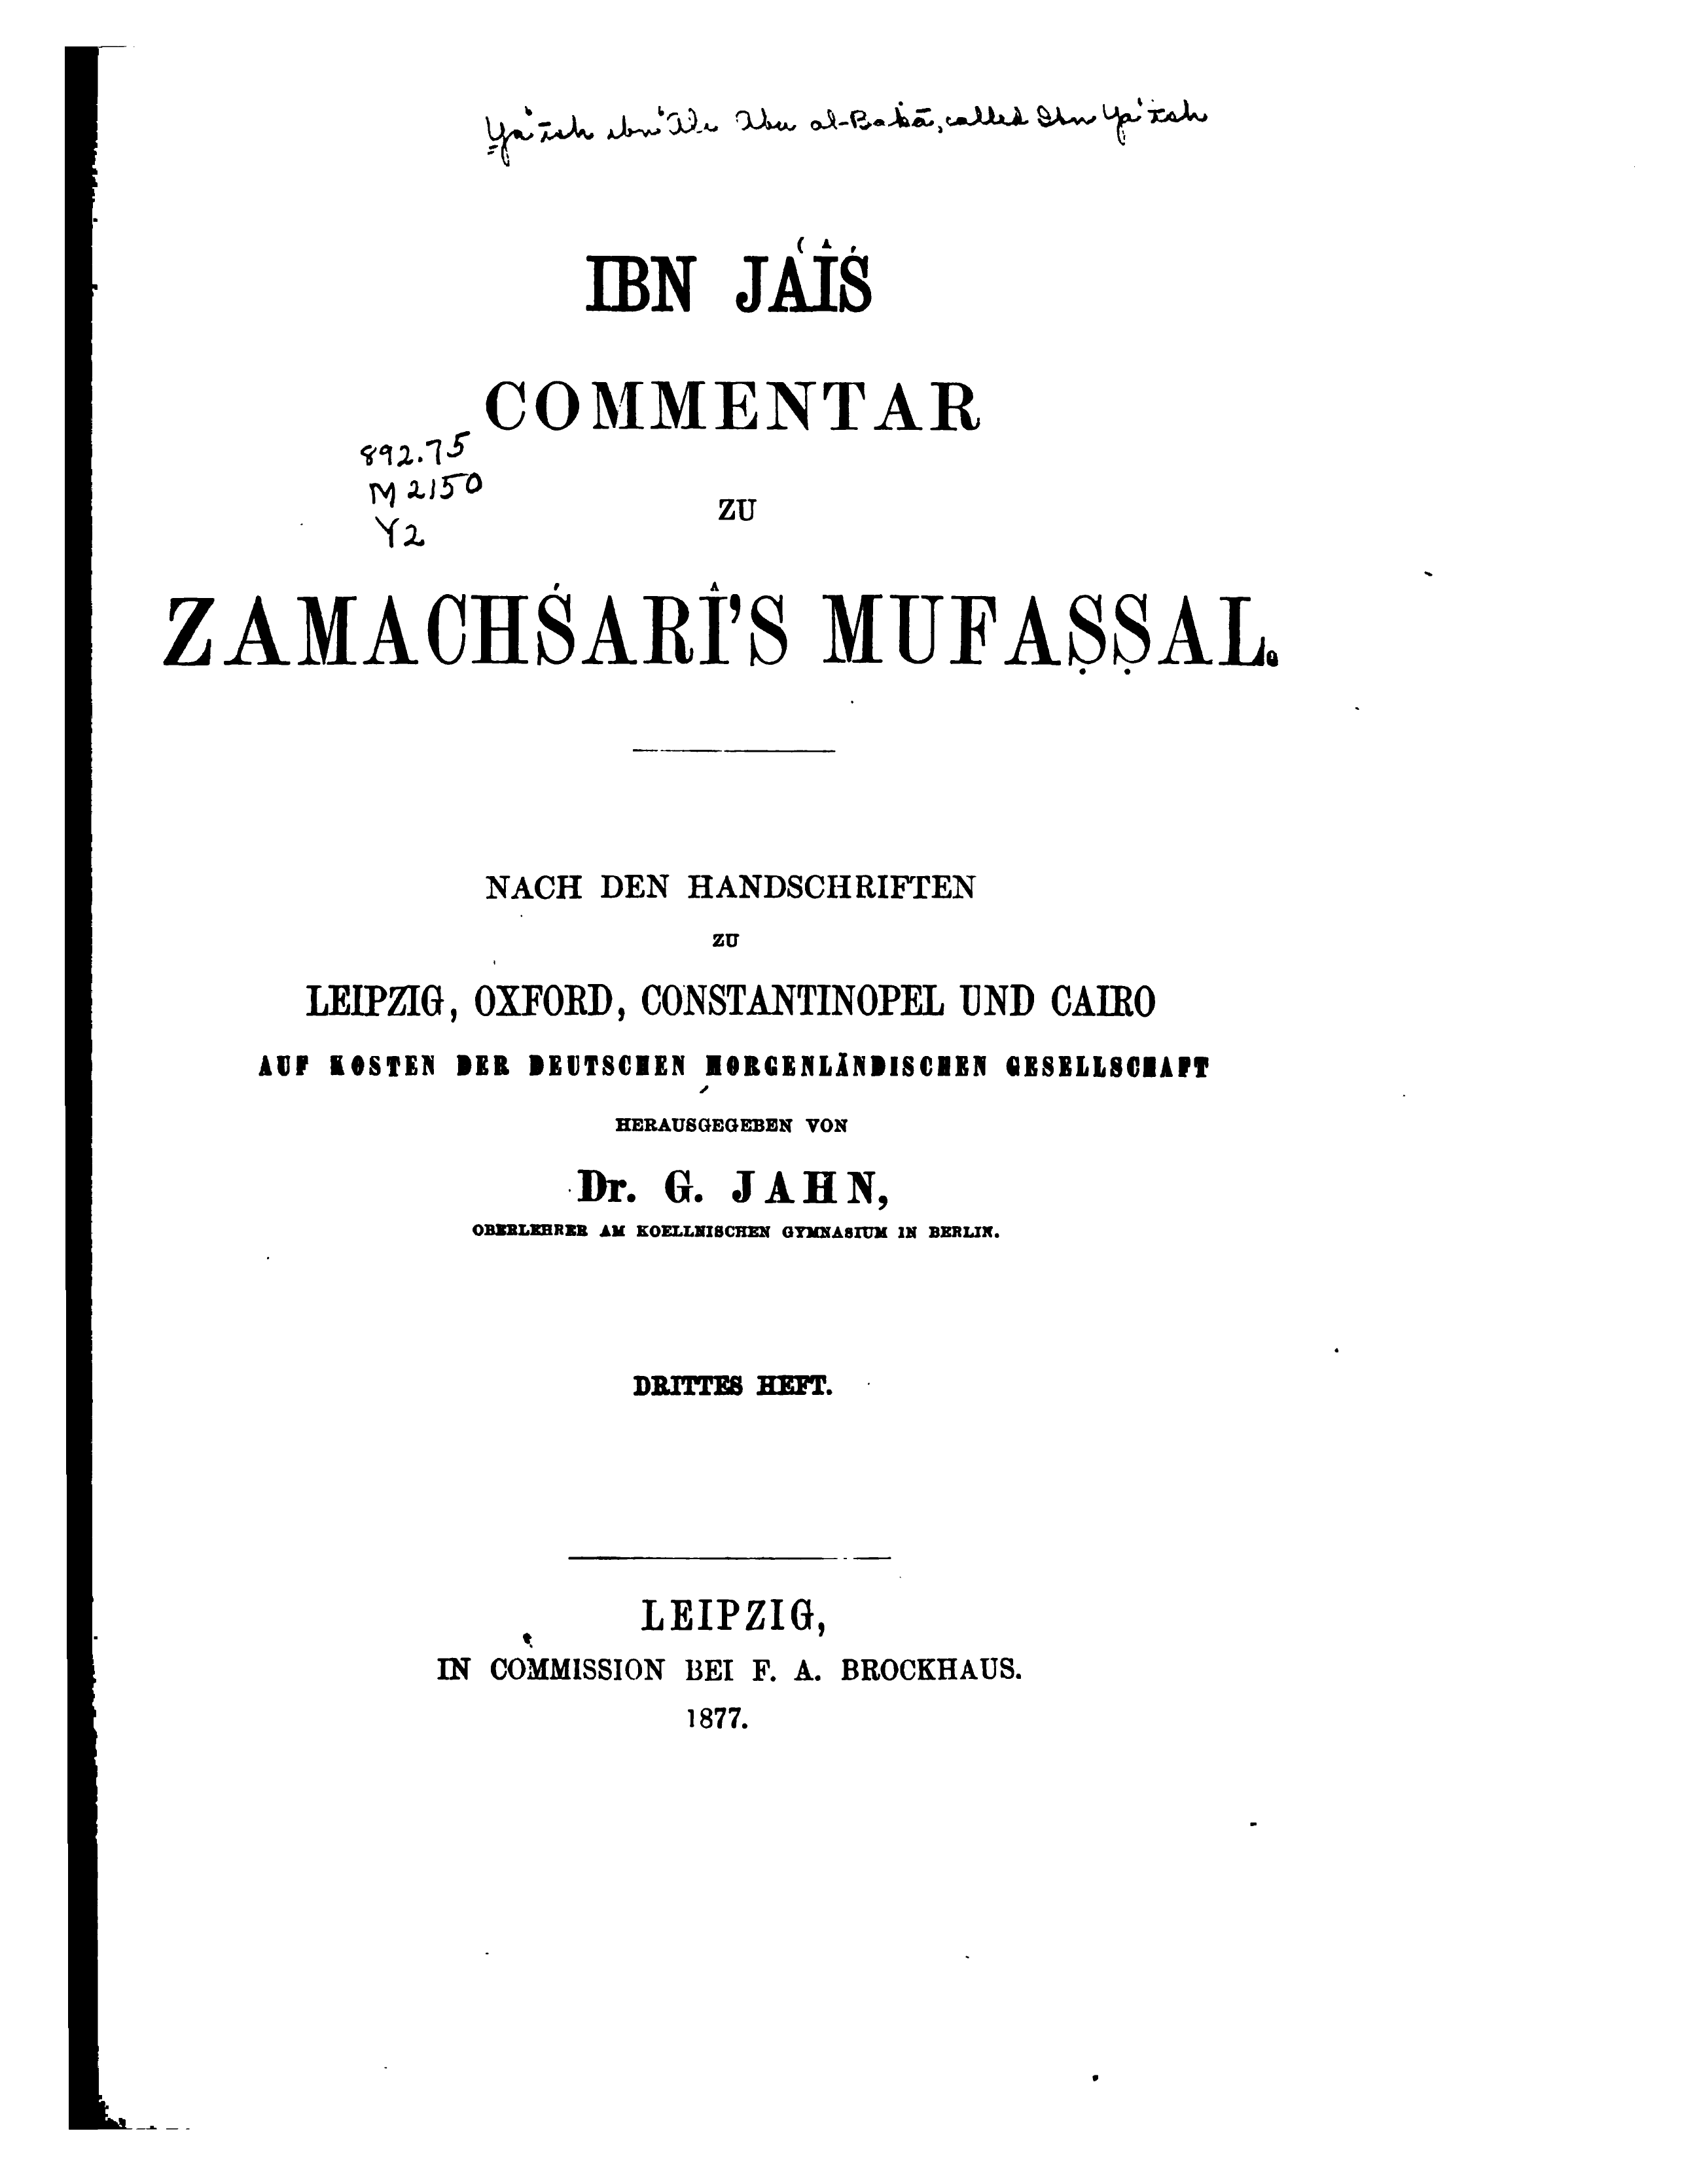 Ya'īsh ibn 'Ali Abu al-Baḳā, called Ibn Ya'īsh
IBN JAʿÎŚ
COMMENTAR
892.75
M2150
Y2
ZU
ZAMACHŚARÎ'S MUFAṢṢAL.
NACH DEN HANDSCHRIFTEN
ZU
LEIPZIG, OXFORD, CONSTANTINOPEL UND CAIRO
AUF KOSTEN DER DEUTSCHEN MORGENLÄNDISCHEN GESELLSCHAFT
HERAUSGEGEBEN VON
Dr. G. JAHN,
OBERLEHRER AM KOELLNISCHEN GYMNASIUM IN BERLIN.
DRITTES HEFT.
LEIPZIG,
IN COMMISSION BEI F. A. BROCKHAUS.
1877.